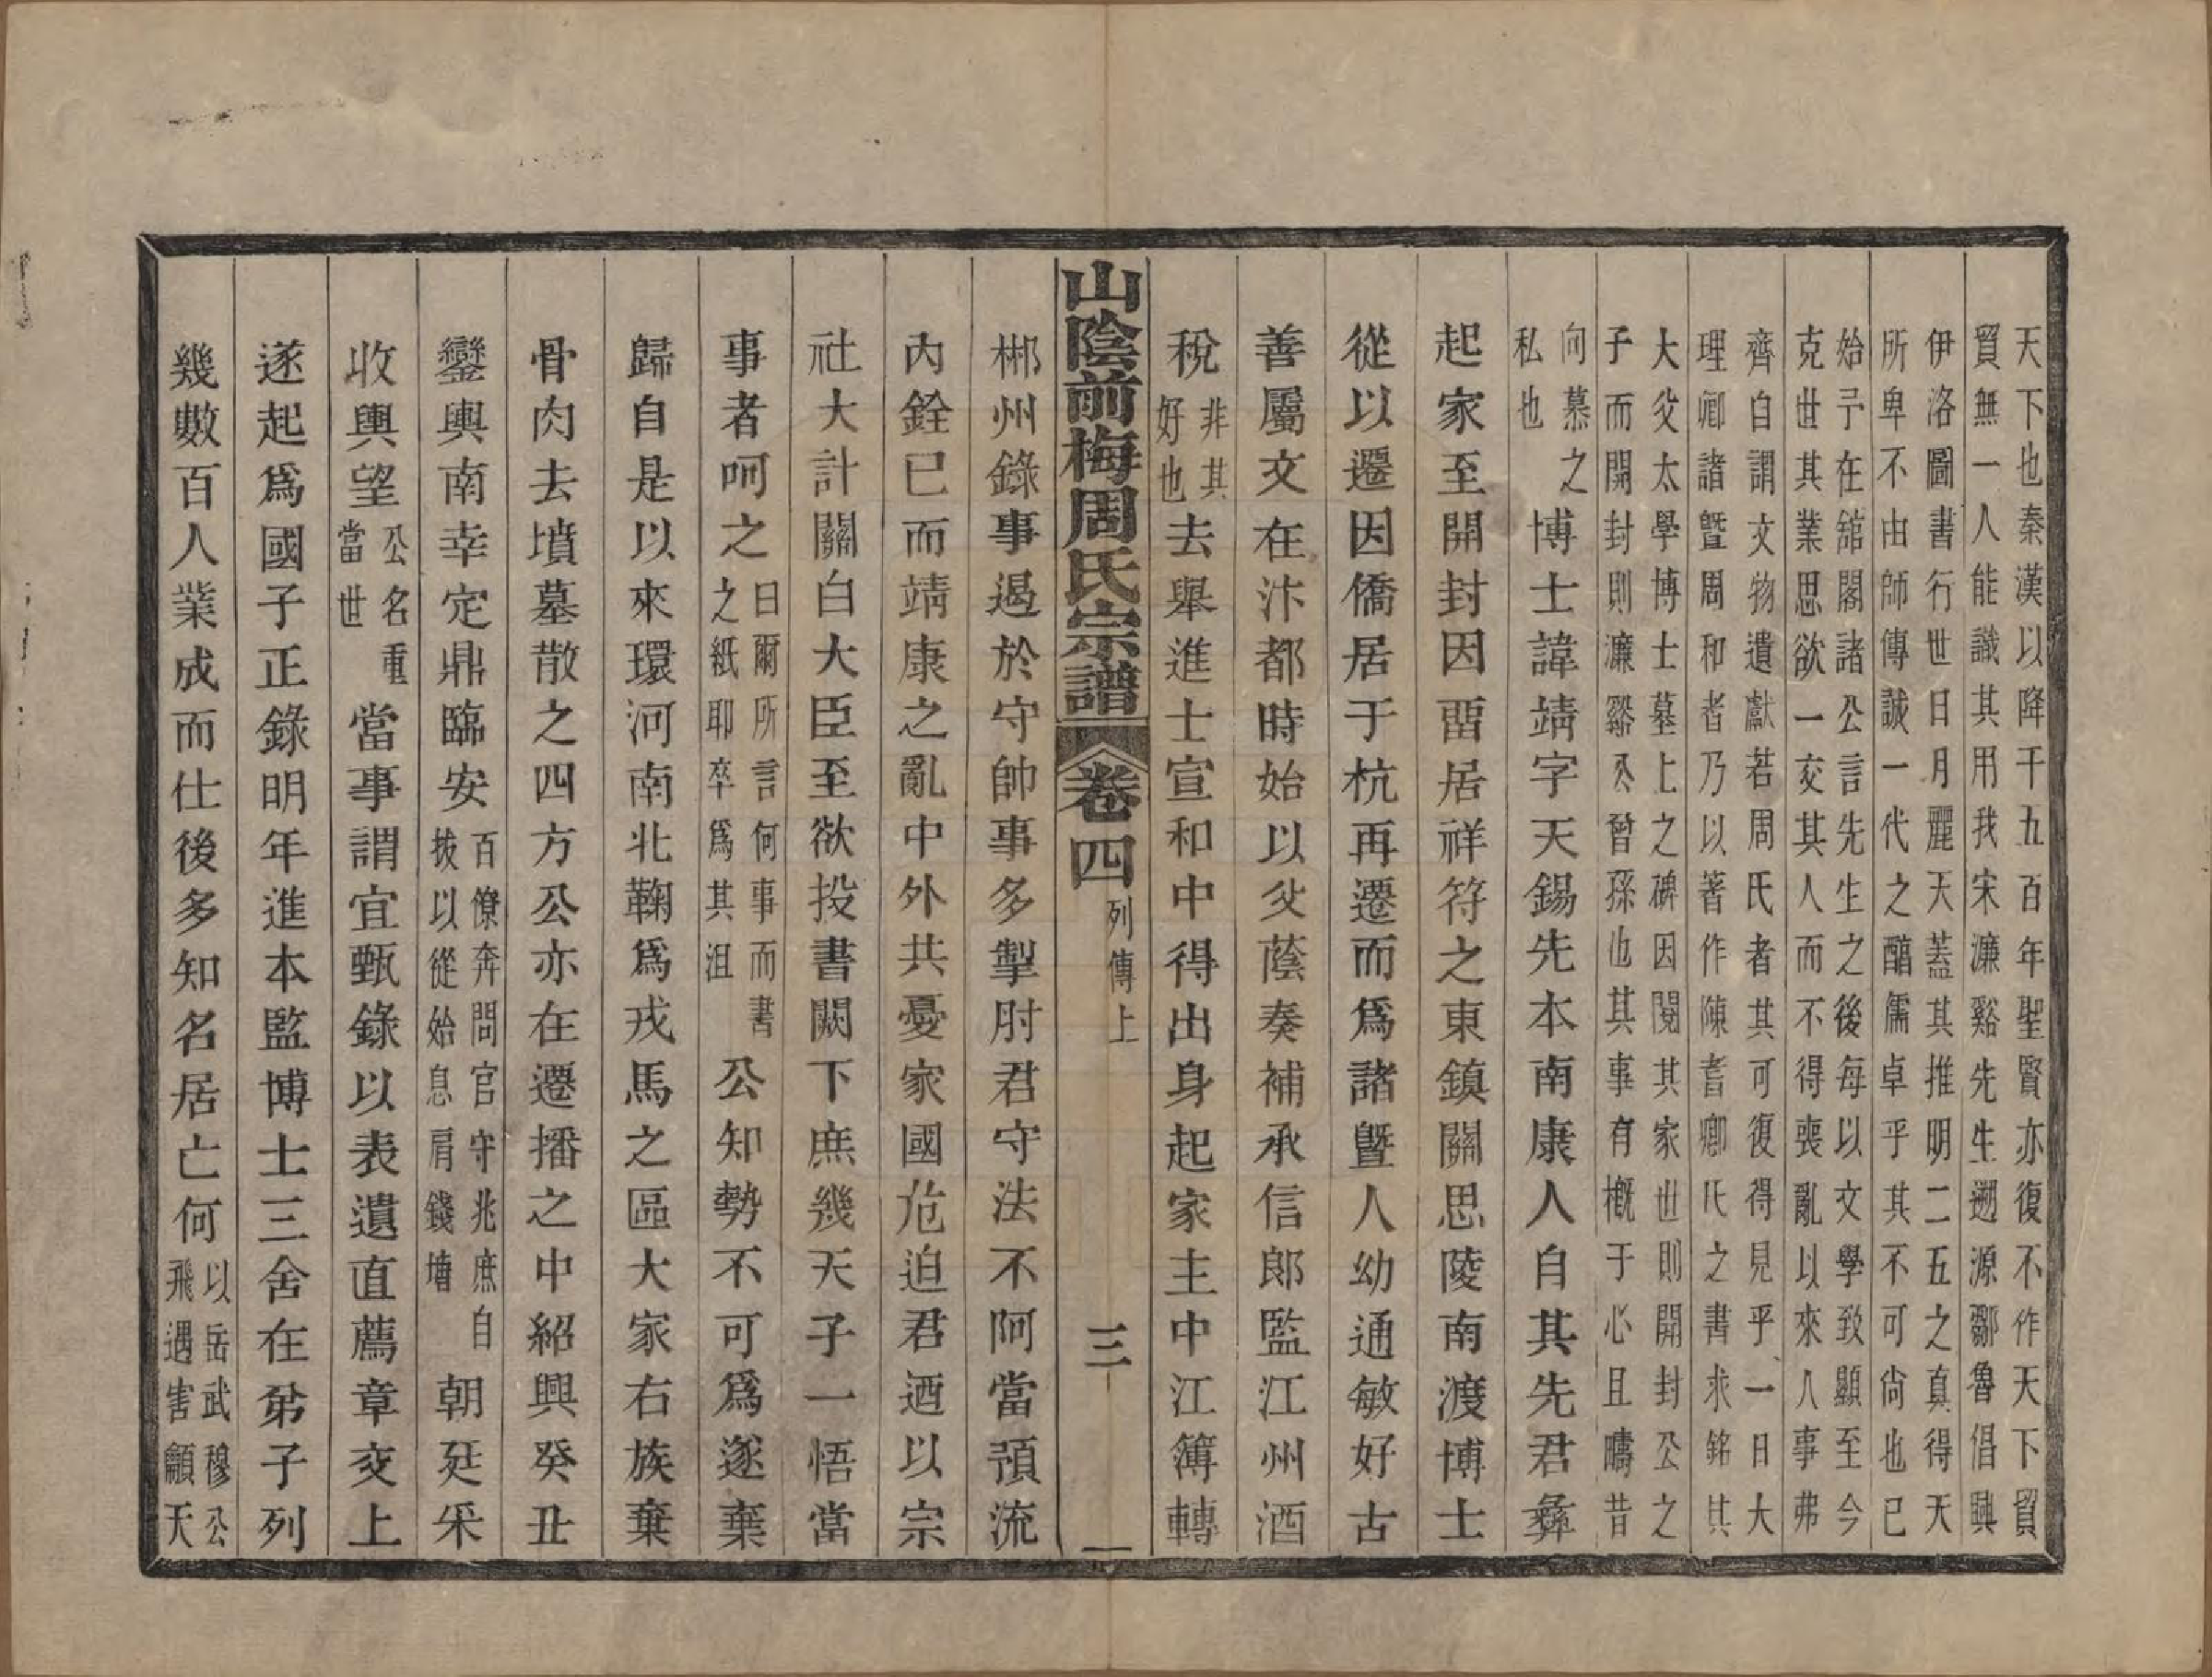 天下也秦漢以降千五百年聖賢亦復不作天下貿
貿無一人能識其用我宋濂谿先生遡源鄒魯倡興
伊洛圖書行世日月麗天蓋其推明二五之真得天
所卑不由師傳誠一代之醕儒卓乎其不可尙也已
始予在舘閣諸公言先生之後每以文學致顯至今
克世其業思欲一交其人而不得喪亂以來人事弗
齊自謂文物遺獻若周氏者其可復得見乎一日大
理卿諸暨周和者乃以著作陳耆卿氏之書求銘其
大父太學博士墓上之碑因閱其家世則開封公之
子而開封則濂谿公曾孫也其事有槪于心且疇昔
向慕之
私也
博士諱靖字天錫先本南康人自其先君彝
起家至開封因畱居祥符之東鎮關思陵南渡博士
從以遷因僑居于杭再遷而爲諸暨人幼通敏好古
善屬文在汴都時始以父蔭奏補承信郎監江州酒
稅
非其
好也
去舉進士宣和中得出身起家主中江簿轉
山陰前梅周氏宗譜
卷四
列傳上
三
郴州錄事遏於守帥事多掣肘君守法不阿當預流
內銓已而靖康之亂中外共憂家國危迫君迺以宗
社大計關白大臣至欲投書闕下庶幾天子一悟當
事者呵之
曰爾所言何事而書
之紙耶卒爲其沮
公知勢不可爲遂棄
歸自是以來環河南北鞠爲戎馬之區大家右族棄
骨肉去墳墓散之四方公亦在遷播之中紹興癸丑
鑾輿南幸定鼎臨安
百僚奔問官守兆庶自
拔以從始息肩錢塘
朝廷采
收輿望
公名重
當世
當事謂宜甄錄以表遺直薦章交上
遂起爲國子正錄明年進本監博士三舍在弟子列
幾數百人業成而仕後多知名居亡何
以岳武穆公
飛遇害籲天